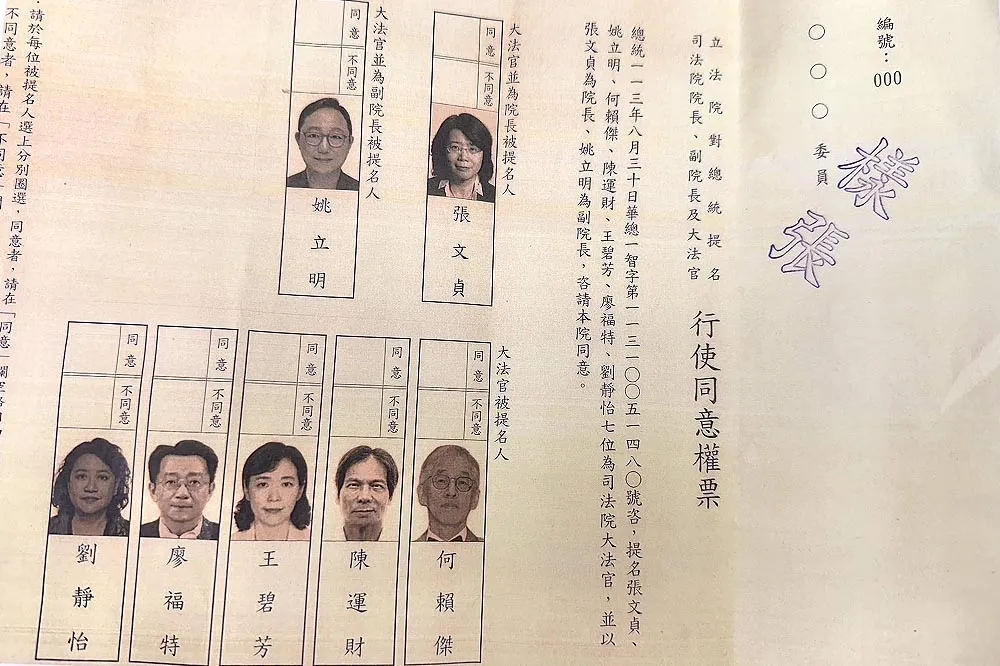 編號：000
○○○委員
樣張
立法院對總統提名
司法院院長、副院長及大法官
行使同意權票
總統一一三年八月三十日華總一智字第一一三一○○五一四八○號咨，提名張文貞、
姚立明、何賴傑、陳運財、王碧芳、廖福特、劉靜怡七位為司法院大法官，並以
張文貞為院長、姚立明為副院長，咨請本院同意。
大法官並為院長被提名人
同意
不同意
張文貞
大法官並為副院長被提名人
同意
不同意
姚立明
大法官被提名人
同意
不同意
何賴傑
同意
不同意
陳運財
同意
不同意
王碧芳
同意
不同意
廖福特
同意
不同意
劉靜怡
：請於每位被提名人選上分別圈選，同意者，請在「同意」欄
不同意者，請在「不同意」